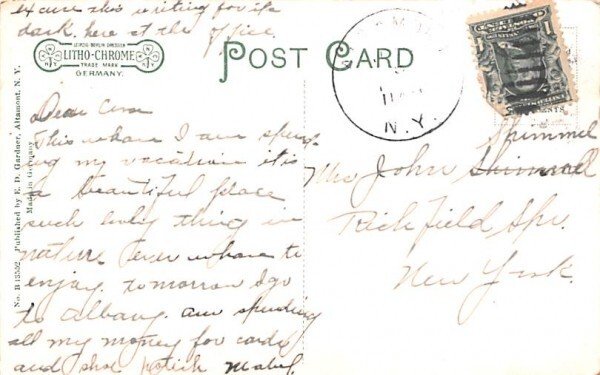 excuse this writing for its
dark here at the office
LEIPZIG-BERLIN-DRESDEN
LITHO-CHROME
TRADE MARK
GERMANY.
POST CARD
N.Y.
No. B 13552 Published by E. D. Gardner, Altamont, N. Y.
Made in Germany
Dear
This whare I am spend
ing my vacation it is
a beautiful place
such thing in
nature ever whare to
enjoy tomorrow I go
to Albany am spending
all my money for cards
and shoe Mabel
Shimmel
Mrs John Shimmel
Richfield Spr.
New York.